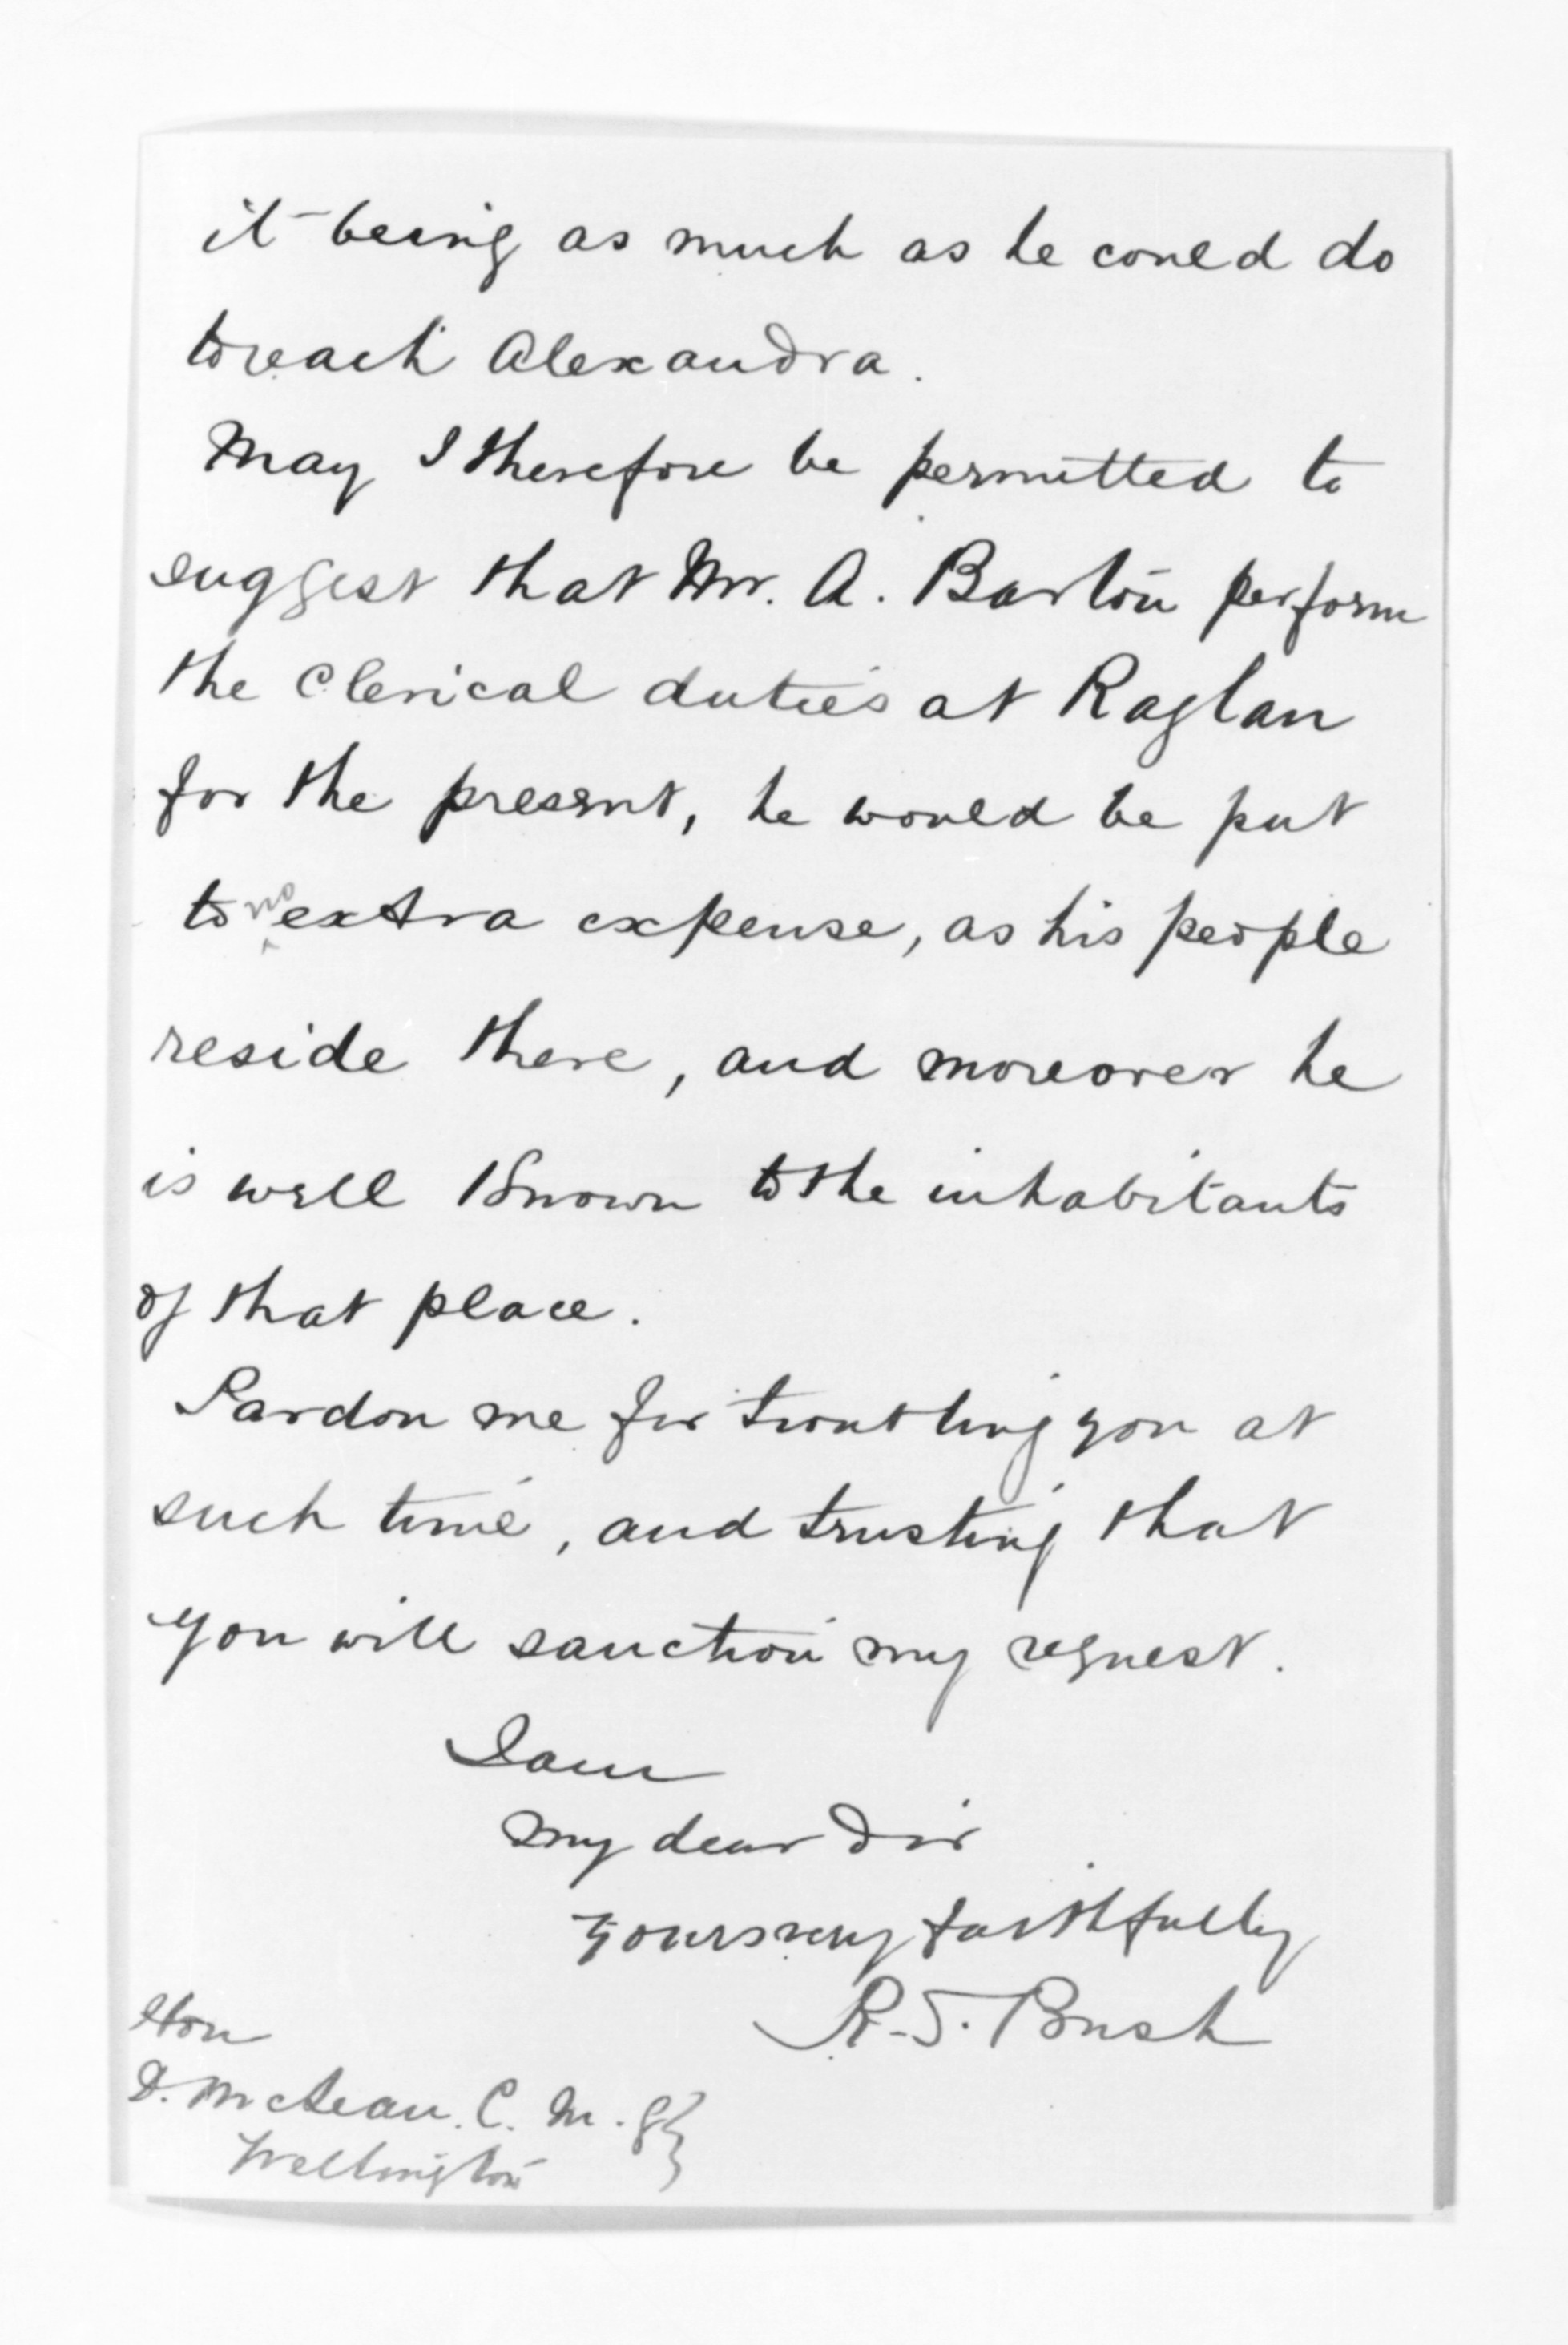 it being as much as he could do
to reach Alexandra.
May I therefore be permitted to
suggest that Mr. A. Barton perform
the Clerical duties at Raglan
for the present, he would be put
to no extra expense, as his people
reside there, and moreover he
is well Known to the inhabitants
of that place.
Pardon me for troubling you at
such time, and trusting that
you will sanction my request.
I am
My dear Sir
Yours very faithfully
R. S. Bush
Hon
D. McLean. C. M. G
Wellington